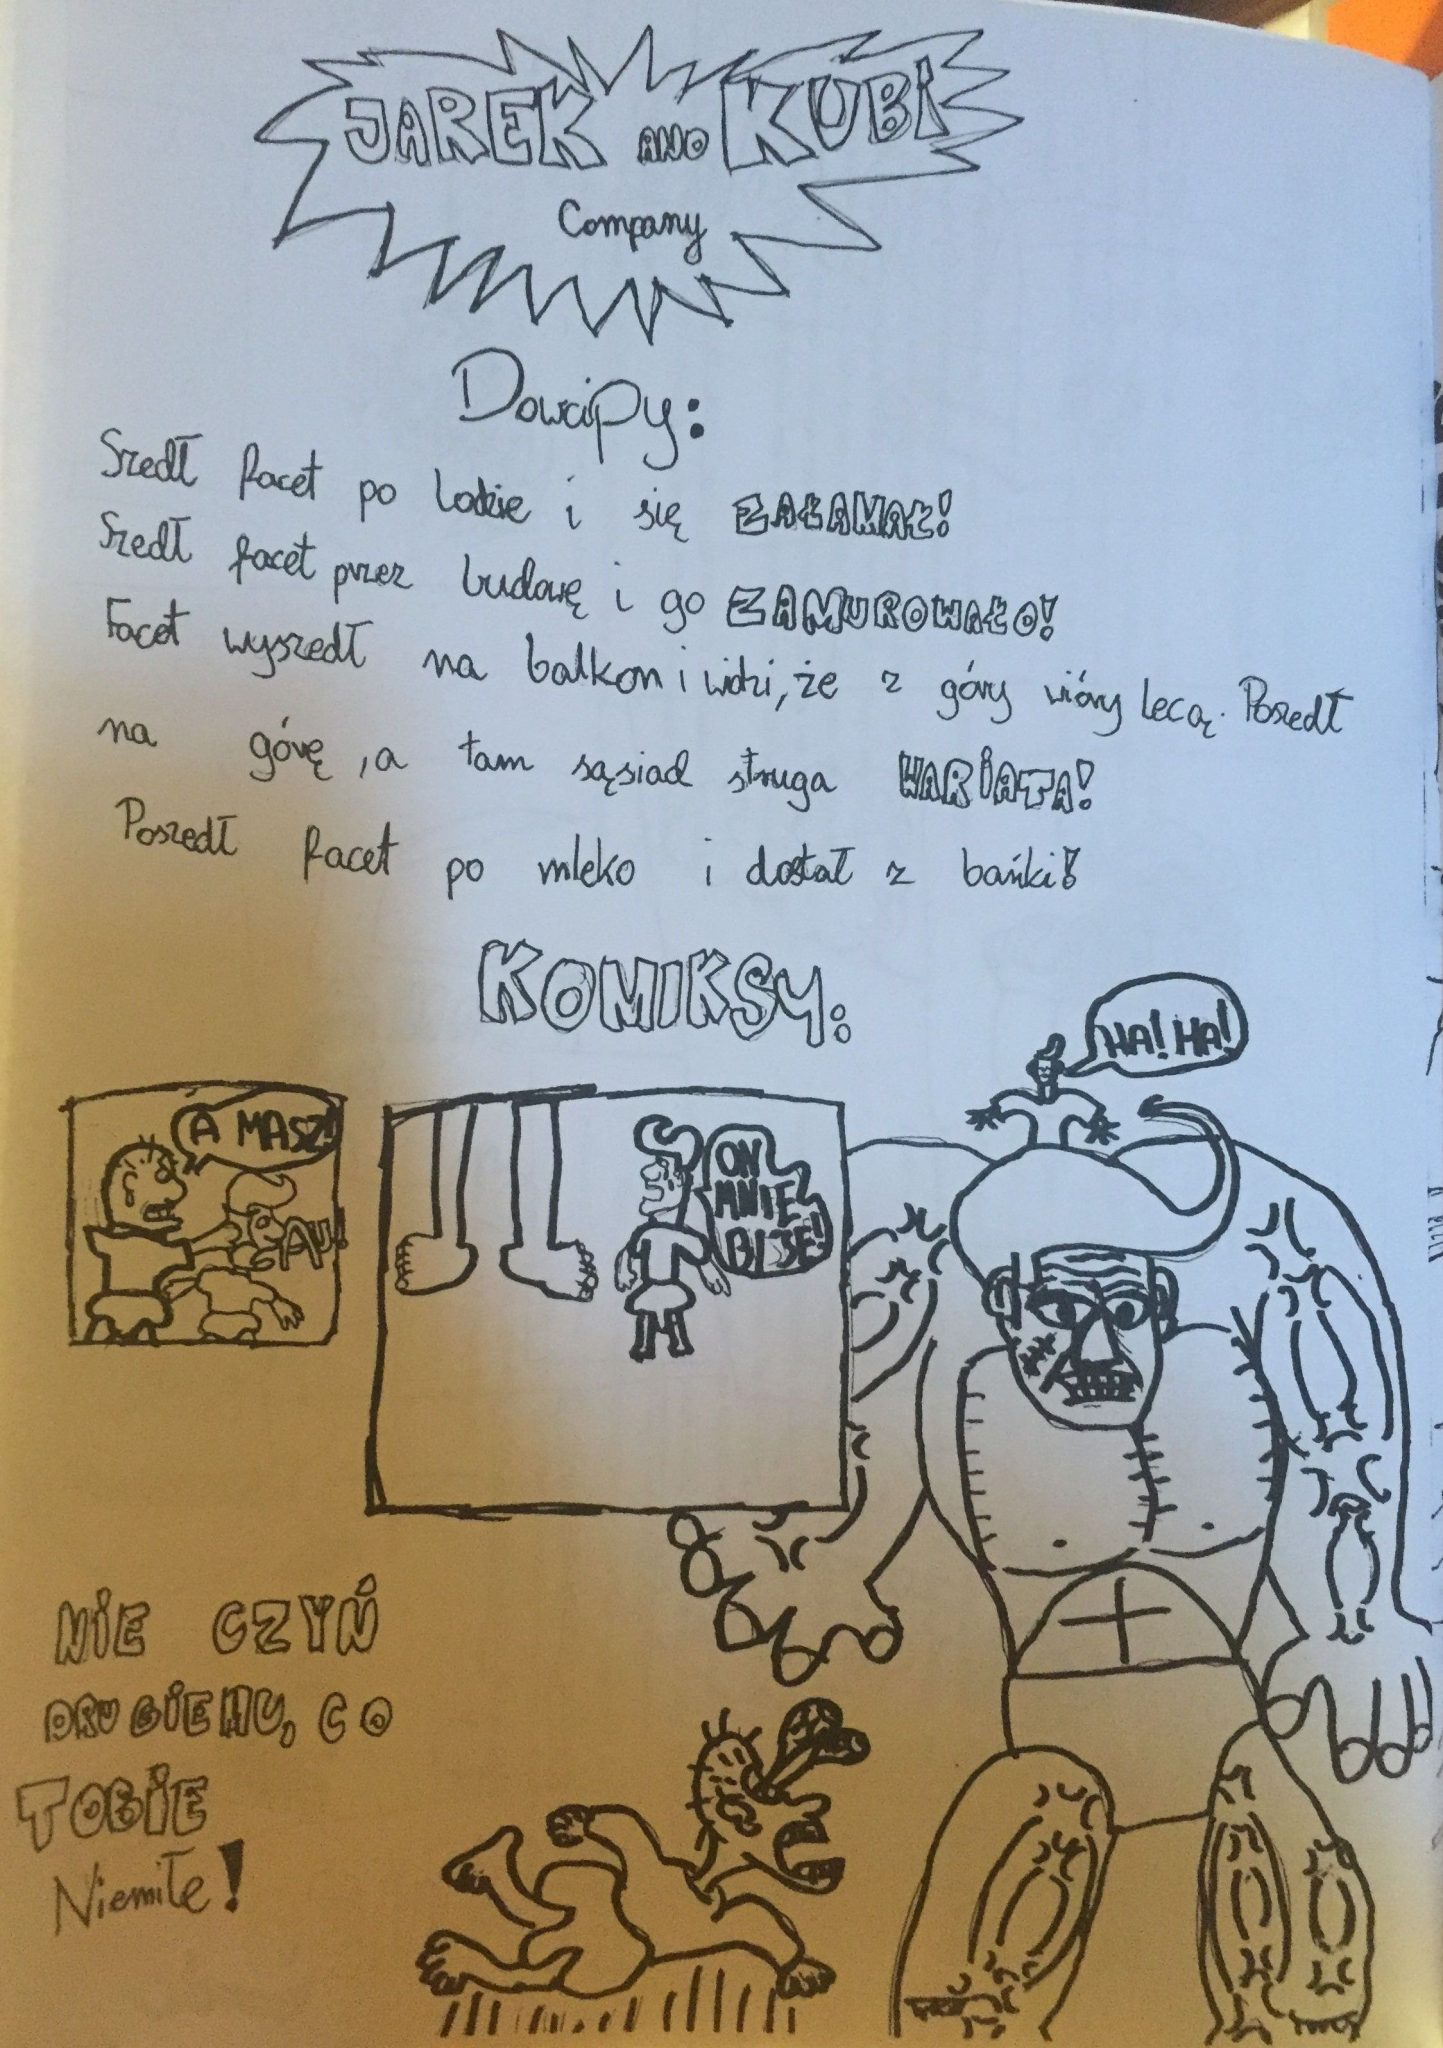 JAREK AND KUBI
Company
Dowcipy:
Szedł facet po lodzie i się ZAŁAMAŁ!
Szedł facet przez budowę i go ZAMUROWAŁO!
Facet wyszedł na balkon i widzi, że z góry wióry lecą. Poszedł
na górę, a tam sąsiad struga WARIATA!
Poszedł facet po mleko i dostał z bańki!
KOMIKSY:
HA! HA!
A MASZ!
AU!
ON
MNIE
BIJE!
NIE CZYŃ
DRUGIEMU, CO
TOBIE
Niemiłe!